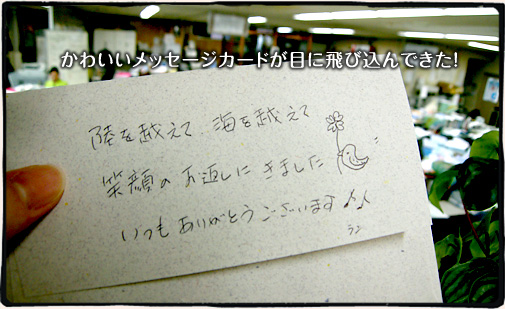 かわいいメッセージカードが目に飛び込んできた!
陸を越えて、海を越えて
笑顔のお返しにきました
いつもありがとうございます♪♪